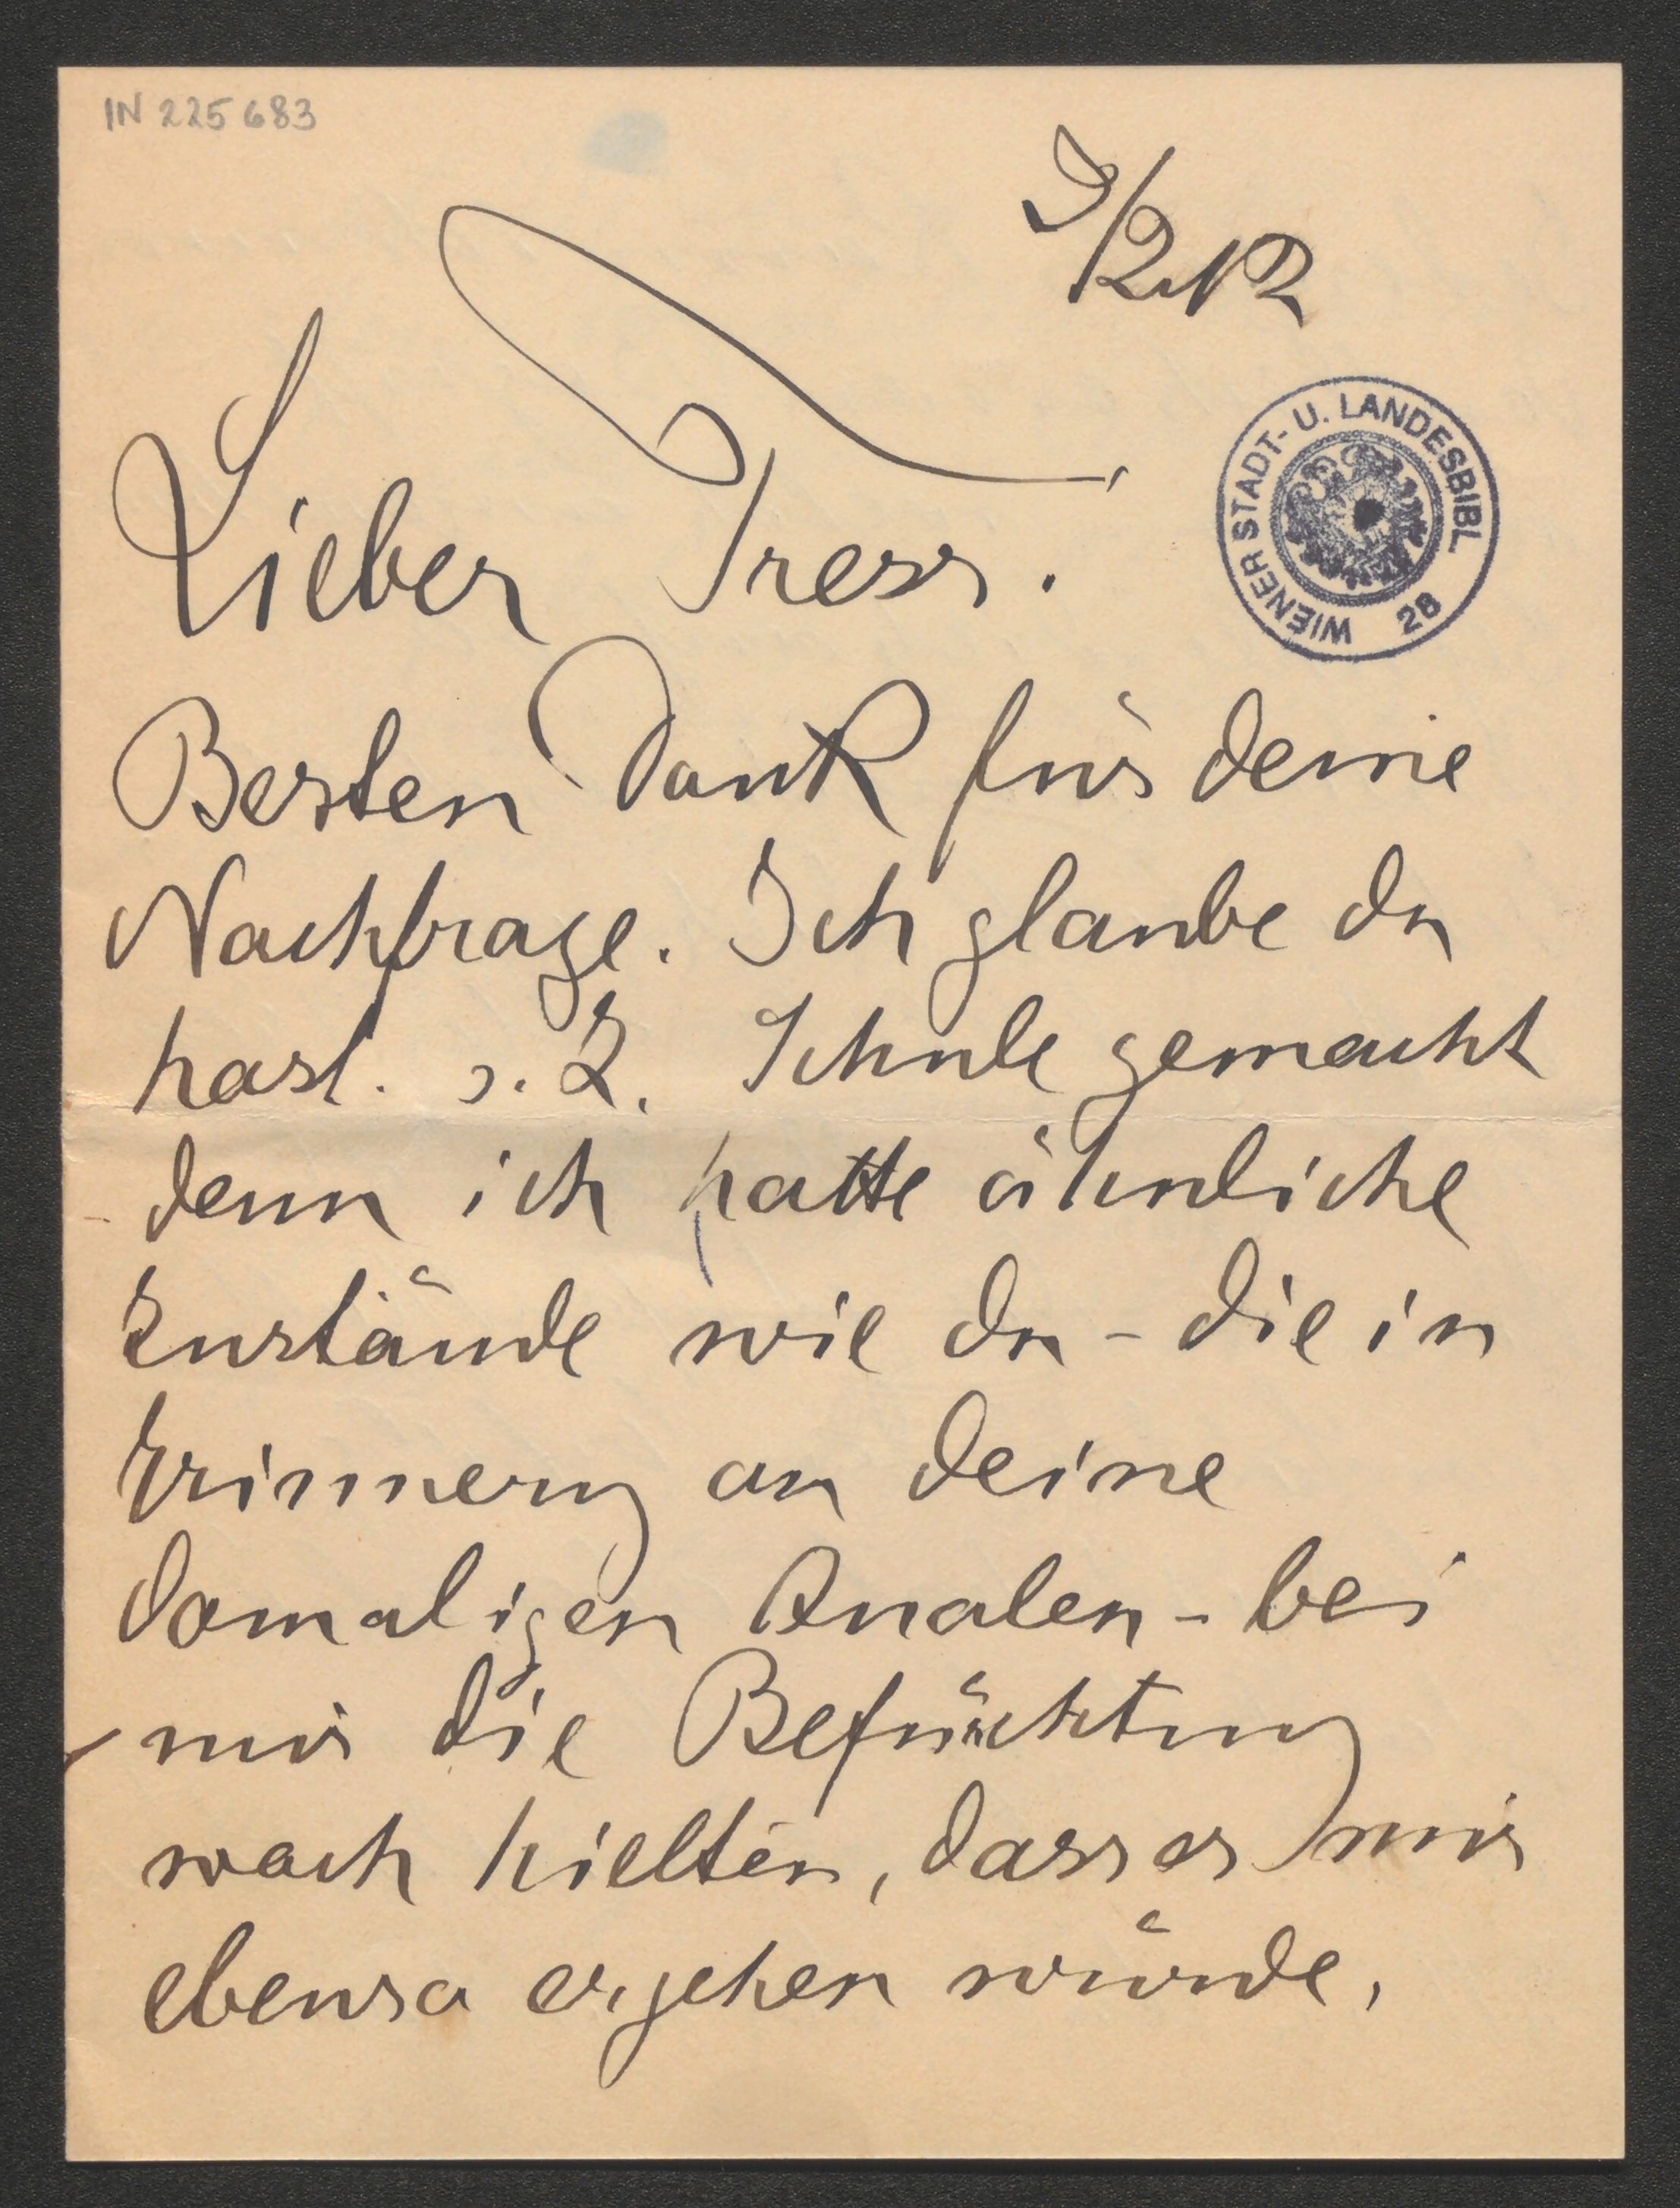 IN 225683
9/2 12
WIENER STADT- U. LANDESBIBL
28
Lieber Tress.
Besten Dank für deine
Nachfrage. Ich glaube du
hast. s. Z. Schule gemacht
denn ich hatte ähnliche
Zustände wie du - die in
Erinnerung an deine
damaligen Qualen - bei
mir die Befürchtung
wach hielten, dass es mir
ebenso ergehen würde,